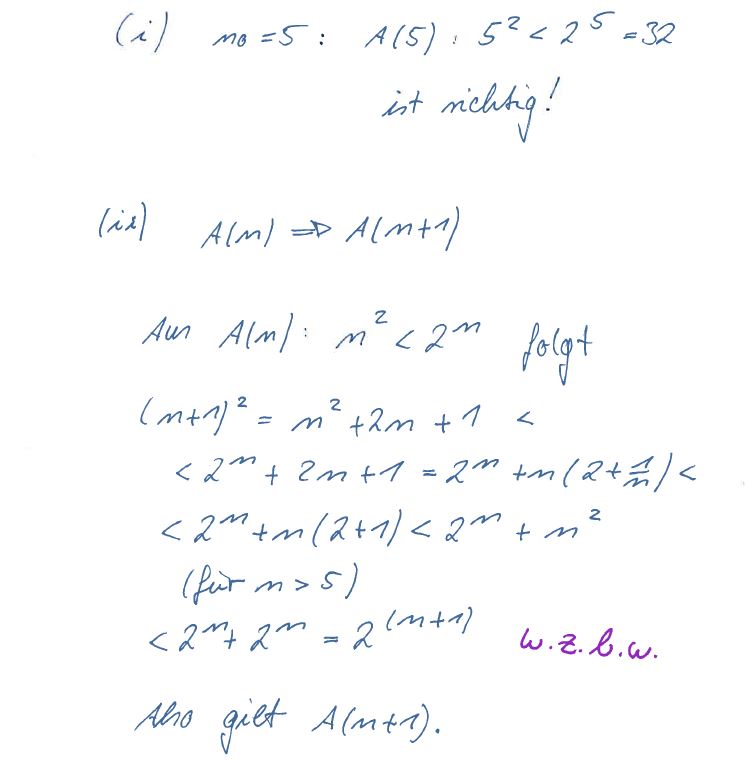 (i) n₀ = 5 : A(5) : 5² < 2⁵ = 32
ist richtig!
(ii) A(n) ⇒ A(n+1)
Aus A(n) : n² < 2ⁿ folgt
(n+1)² = n² + 2n + 1 <
< 2ⁿ + 2n + 1 = 2ⁿ + n(2 + 1/n) <
< 2ⁿ + n(2+1) < 2ⁿ + n²
(für n > 5)
< 2ⁿ + 2ⁿ = 2⁽ⁿ⁺¹⁾ w.z.b.w.
Also gilt A(n+1).